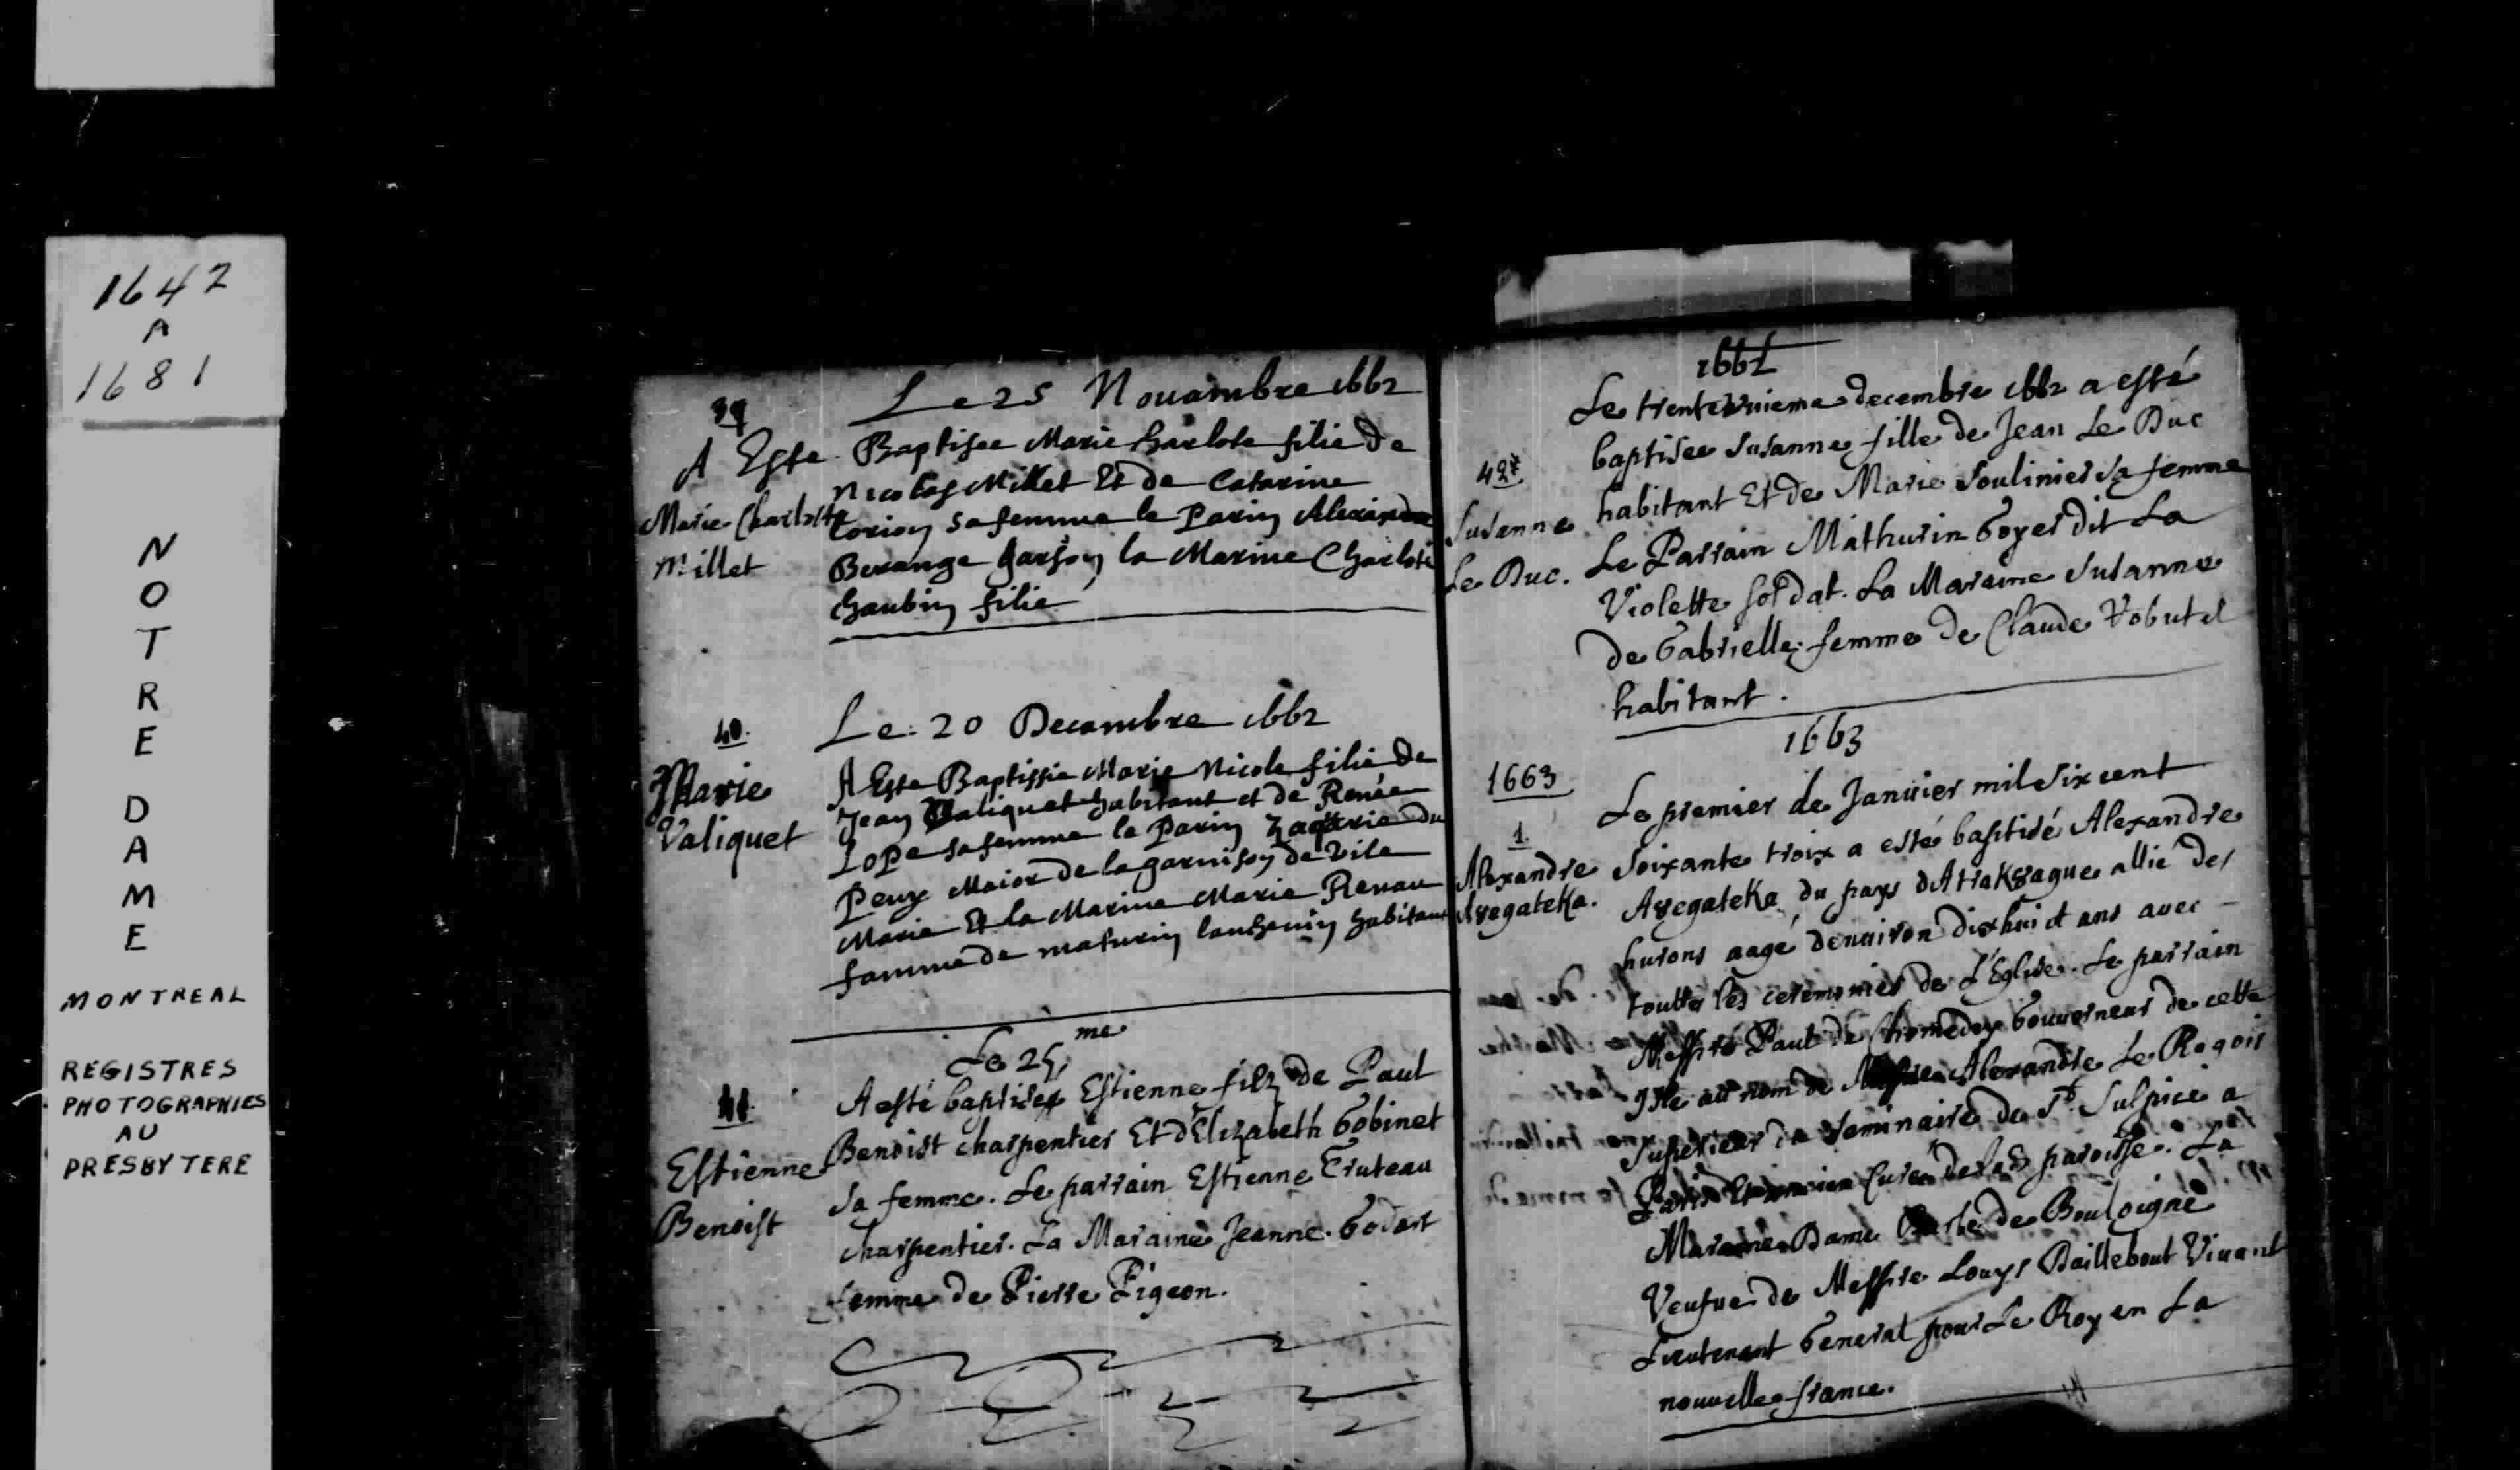 1642
A
1681
NOTRE
DAME
MONTREAL
REGISTRES
PHOTOGRAPHIES
AU
PRESBYTERE
39
Le 25 Nouambre 1662
A Este Baptisee Marie harlote filie de
Nicolas Millet Et de Catarine
Marie Charlotte
Millet
Lorion sa femme le Parin Alexandre
Berange garson la Marine Charlote
haubin filie
40.
Marie
Valiquet
Le 20 Decambre 1662
A Este Baptissie Marie Nicole filie de
Jean Valiquet habitant et de Renée
Lope sa femme le Parin Zaqarie du
Peux Maior de la garnison de Vile
Marie Et la Marine Marie Renau
famme de maturin lanhenin habitant
Le 25me
41.
Estienne
Benoist
A esté baptisé Estienne filz de Paul
Benoist charpentier Et d'Elizabeth Gobinet
sa femme. Le parrain Estienne Truteau
charpentier. La Maraine Jeanne Godart
femme de Pierre Pigeon.
1662
Le trente unieme decembre 1662 a esté
baptisee Susanne fille de Jean Le Duc
42
Susanne
Le Duc.
habitant Et de Marie Soulinier sa femme
Le Parrain Mathurin Goyer dit La
Violette soldat. La Maraine Susanne
de Gabrielle femme de Claude Robutel
habitant.
1663
1663
1.
Alexandre
A8egateKa.
Le premier de Januier mil six cent
soixante troix a esté baptisé Alexandre
A8egateKa du pays d'AtraK8ague allié des
hurons aagé denuiron dix huict ans auec
toutes les ceremonies de L'Eglise. Le parrain
Messire Paul de Chomedey Gouuerneur de cette
Isle au nom de Messire Alexandre Le Ragois
Superieur du Seminaire de St. Sulpice a
Paris Et ancien Curé de lad. paroisse. La
Maraine Dame Barbe de Bouloigne
Veufue de Messire Louys Daillebout Viuant
Lieutenant General pour Le Roy en La
nouuelle france.